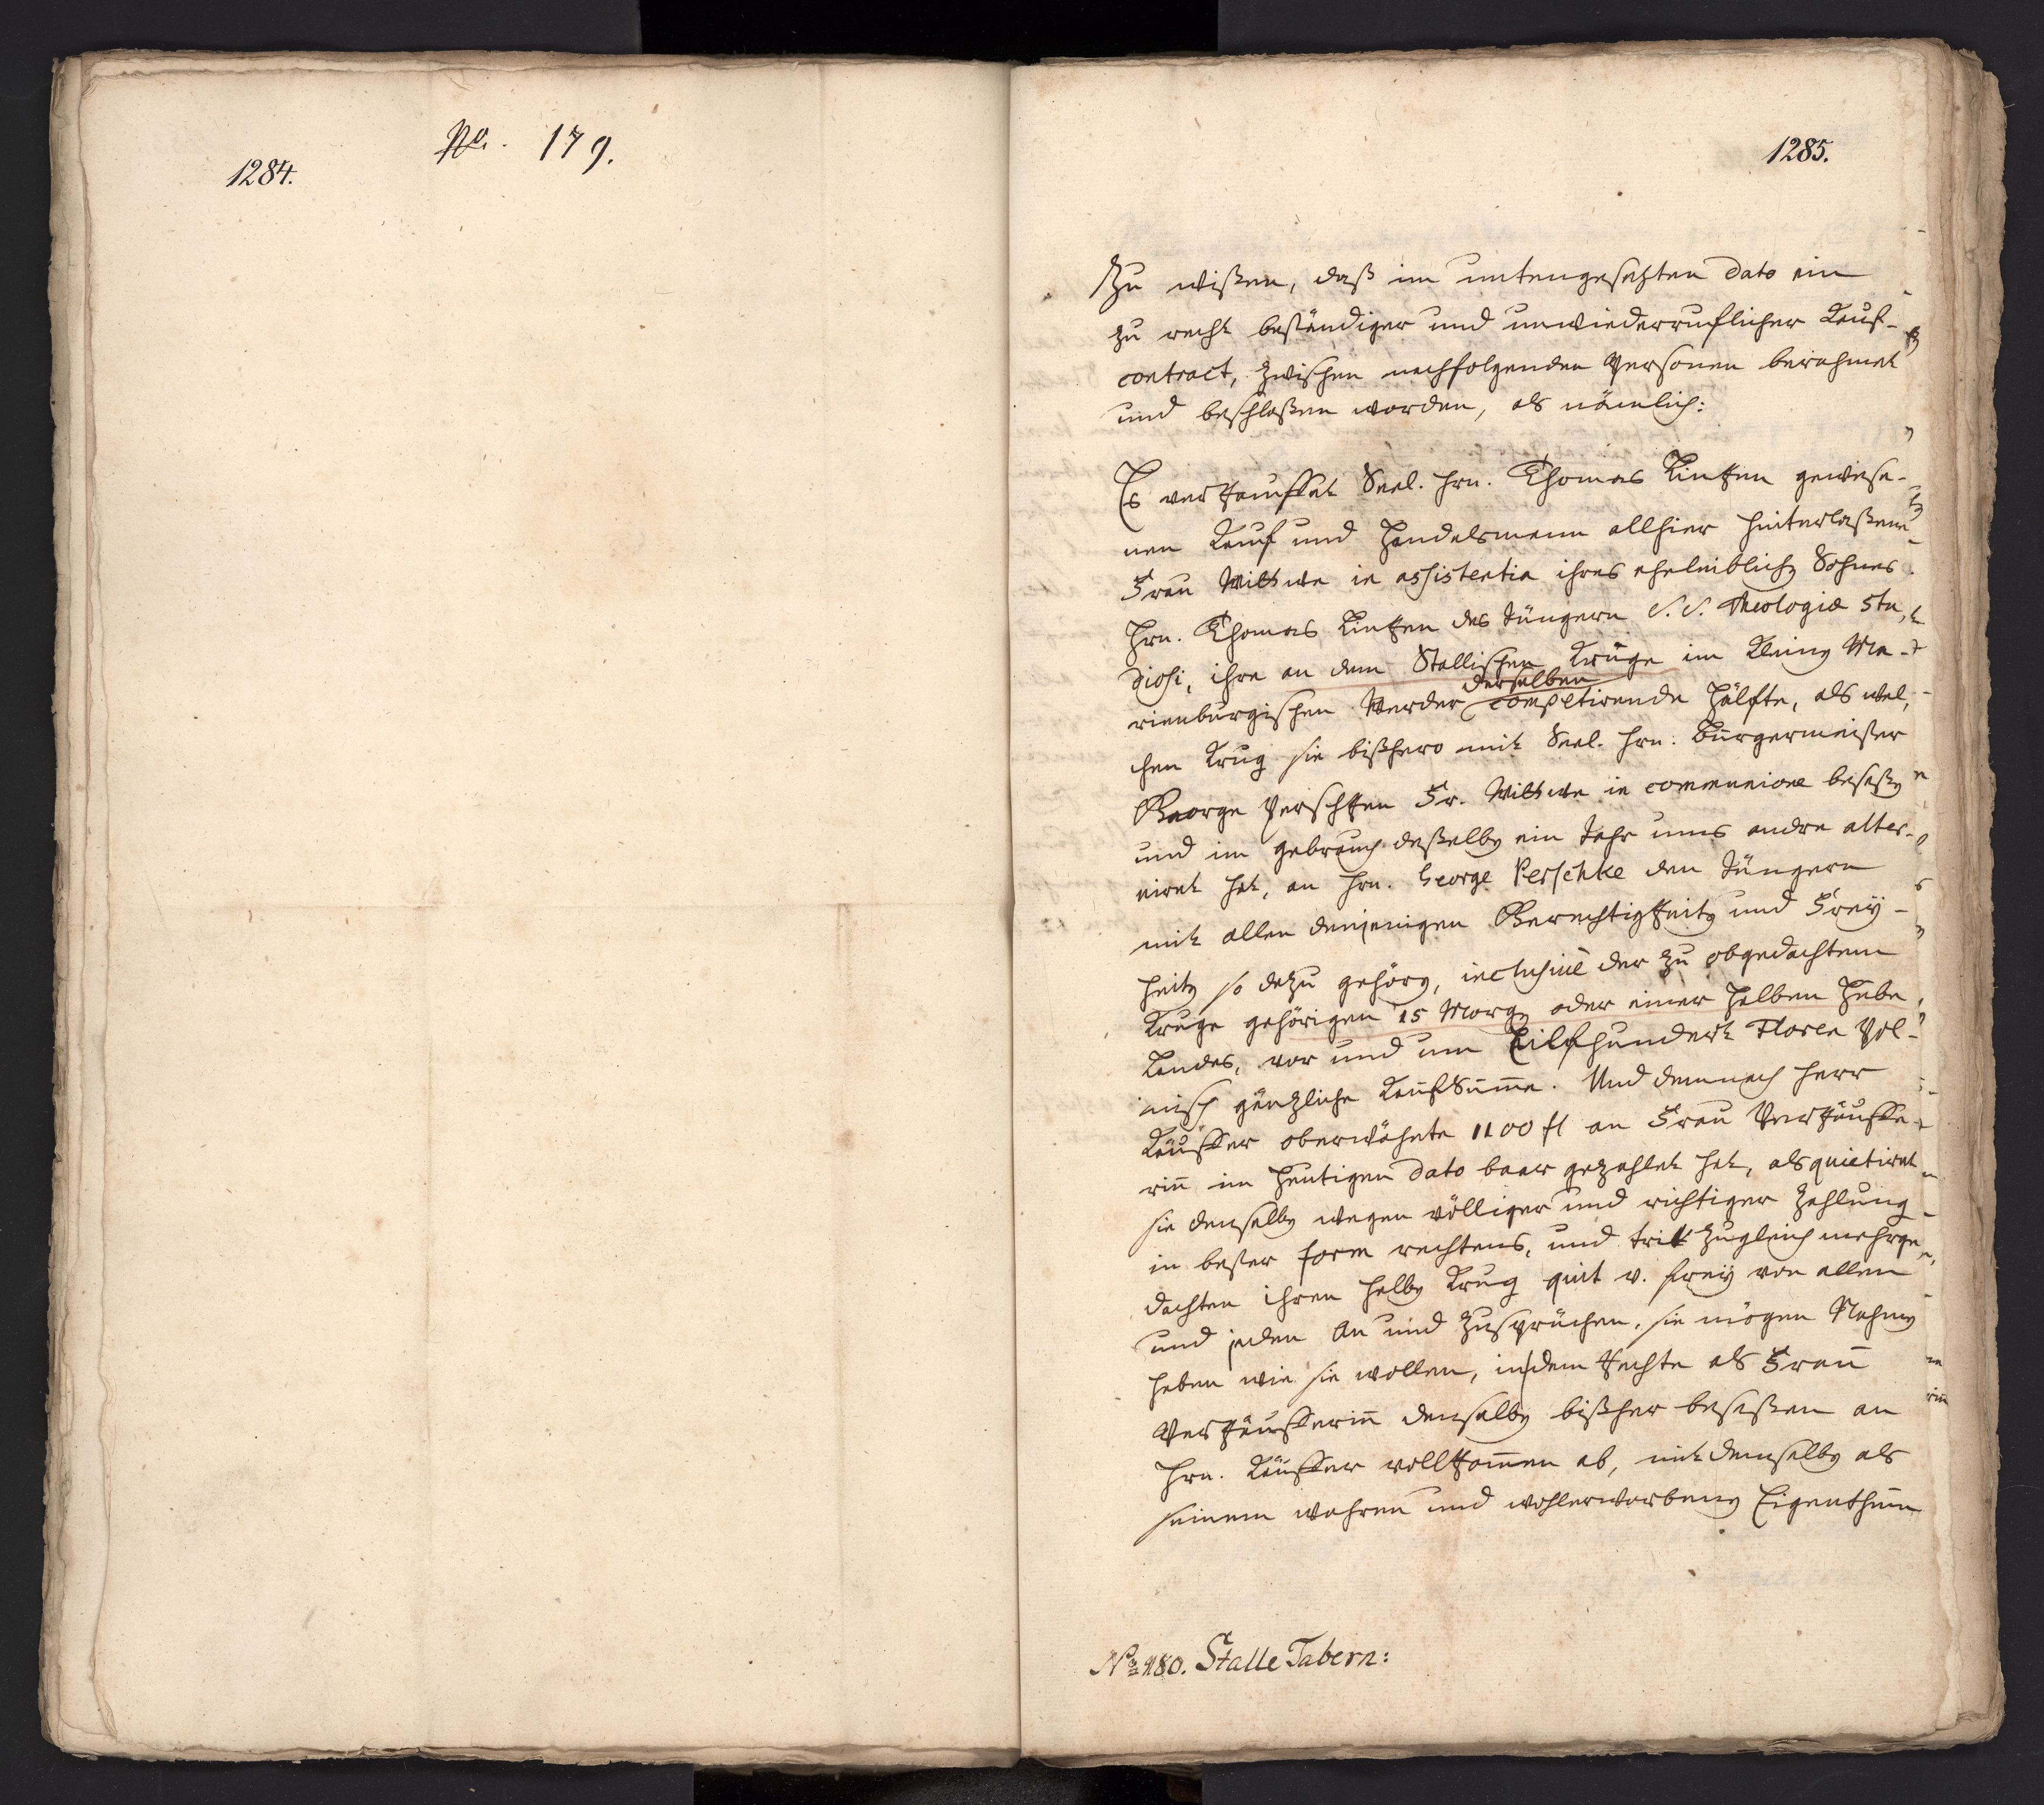 1284.
No. 179.
1285.
Zu wißen, daß im untengesetzten dato ein
zu recht beständiger und unwiederruflicher Kauf-
contract, zwischen nachfolgenden Persohnen berahmet
und beschloßen worden, als nämlich:
Es verkauffet Seel. Hrn. Thomas Linken gewese-
nen Kauf und Handelsmann allhier hinterlaßene
Frau Wittwe in assistentia ihres eheleiblichen Sohnes
Hrn. Thomas Linken des Jüngern S. S. Theologiæ Stu,
diosi, ihre an dem Stallischen Kruge im Kleinen Ma-
rienburgischen Werder derselben competirende Hälfte, als wel,
chen Krug sie bißhero mit Seel. Hrn. Bürgermeister
George Perschken Fr. Wittwe in communione beseßen
und im gebrauch deßelben ein Jahr ums andre alter-
niret hat, an Hrn. George Perschke den Jüngern
mit allen denjenigen Gerechtigkeiten und Frey-
heiten so dazu gehören, inclusive der zu obgedachtem
Kruge gehörigen 15 Morgen oder einer halben Hube
Landes, vor und um Eilfhundert Floren Pol-
nisch gäntzliche Kauf Summe. Und demnach Herr
Käuffer oberwähnte 1100 fl an Frau Verkäuffe-
rin im heutigen dato baar gezahlet hat, als quietiret
sie denselben wegen völliger und richtiger Zahlung
in bester form rechtens, und trit zugleich mehrge,
dachten ihren halben Krug quit v. frey von allen
und jeden An und Zusprüchen, sie mögen Nahmen
haben wie sie wollen, in dem Rechte als Frau
Verkäufferin denselben bißher beseßen an
Hrn. Käuffer vollkommen ab, mit demselben als
seinem wahren und wohlerworbenen Eigenthum
No 180. Stalle Tabern: